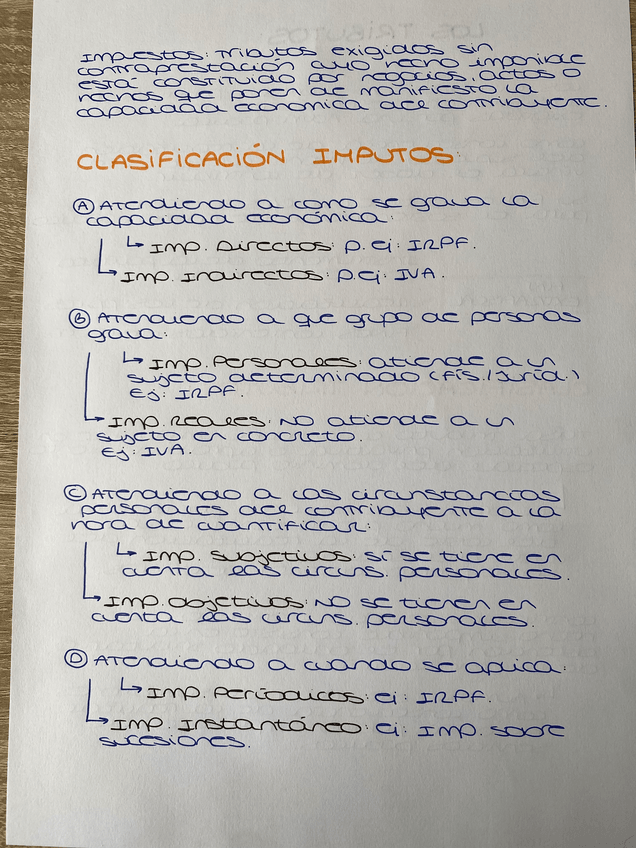 Impuestos: Tributos exigidos sin
contraprestación cuyo hecho imponible
está constituido por negocios, actos o
hechos que ponen de manifiesto la
capacidad económica del contribuyente.
CLASIFICACIÓN IMPUTOS:
Ⓐ Atendiendo a como se grava la
capacidad económica:
↳ Imp. Directos: p.ej: IRPF.
↳ Imp. Indirectos: p.ej: IVA.
Ⓑ Atendiendo a que grupo de personas
grava:
↳ Imp. Personales: atiende a un
sujeto determinado (fís./juríd.)
Ej: IRPF.
↳ Imp. Reales: NO atiende a un
sujeto en concreto.
Ej: IVA.
Ⓒ Atendiendo a las circunstancias
personales del contribuyente a la
hora de cuantificar:
↳ Imp. subjetivos: sí se tiene en
cuenta las circuns. personales.
↳ Imp. objetivos: NO se tienen en
cuenta las circuns. personales.
Ⓓ Atendiendo a cuando se aplica:
↳ Imp. Periódicos: ej: IRPF.
↳ Imp. Instantáneo: ej: Imp. sobre
sucesiones.